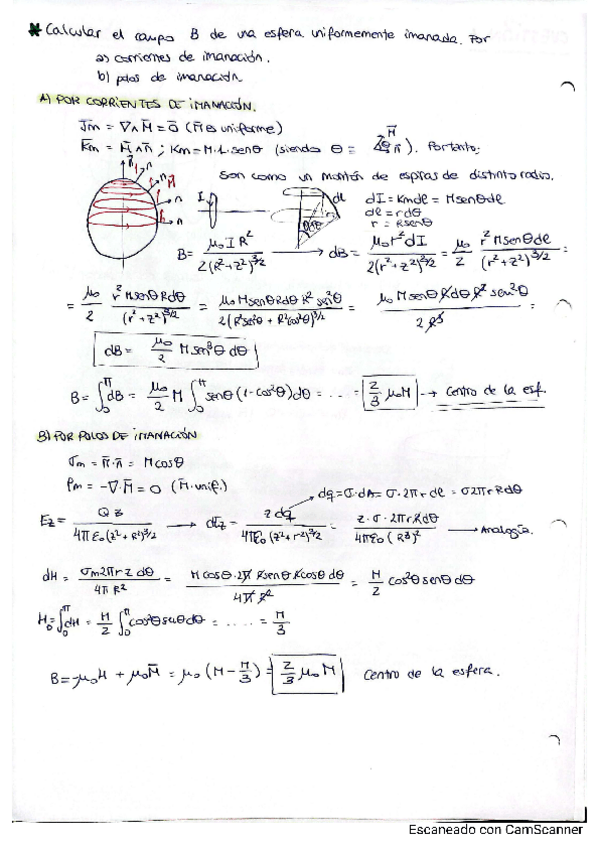 * Calcular el campo B de una esfera uniformemente imanada. Por
a) corrientes de imanación.
b) polos de imanación
A) POR CORRIENTES DE IMANACIÓN.
J̄m = ∇∧M̄ = 0̄ (M̄ es uniforme)
K̄m = M̄∧n̄ ; Km = M·1·senθ (siendo θ = M̄ n̄). Por tanto:
Son como un montón de espiras de distinto radio.
dI = Kmdl = Msenθdl
dl = rdθ
r = Rsenθ
B = μ₀IR²/2(R²+z²)^3/2 → dB = μ₀r²dI/2(r²+z²)^3/2 = μ₀/2 r²Msenθdl/(r²+z²)^3/2 =
= μ₀/2 r²MsenθRdθ/(r²+z²)^3/2 = μ₀MsenθRdθR²sen²θ/2(R²sen²θ + R²cos²θ)^3/2 = μ₀MsenθRdθR²sen²θ/2R³ =
dB = μ₀/2 Msen³θdθ
B = ∫₀^π dB = μ₀/2 M ∫₀^π senθ(1-cos²θ)dθ = ... = 2/3 μ₀M → Centro de la esf.
B) POR POLOS DE IMANACIÓN
σm = M̄·n̄ = Mcosθ
ρm = -∇·M̄ = 0 (M̄ unif.)
dq = σ·dA = σ·2πrdl = σ2πrRdθ
Ez = Qz/4πε₀(z²+R²)^3/2 → dEz = zdq/4πε₀(z²+r²)^3/2 = z·σ·2πrRdθ/4πε₀(R³)² → Analogía.
dH = σm2πrzdθ/4πR² = Mcosθ·2πRsenθRcosθdθ/4πR² = M/2 cos²θsenθdθ
H₀ = ∫₀^π dH = M/2 ∫₀^π cos²θsenθdθ = ..... = M/3
B = -μ₀H + μ₀M̄ = μ₀(M - M/3) = 2/3 μ₀M Centro de la esfera.
Escaneado con CamScanner